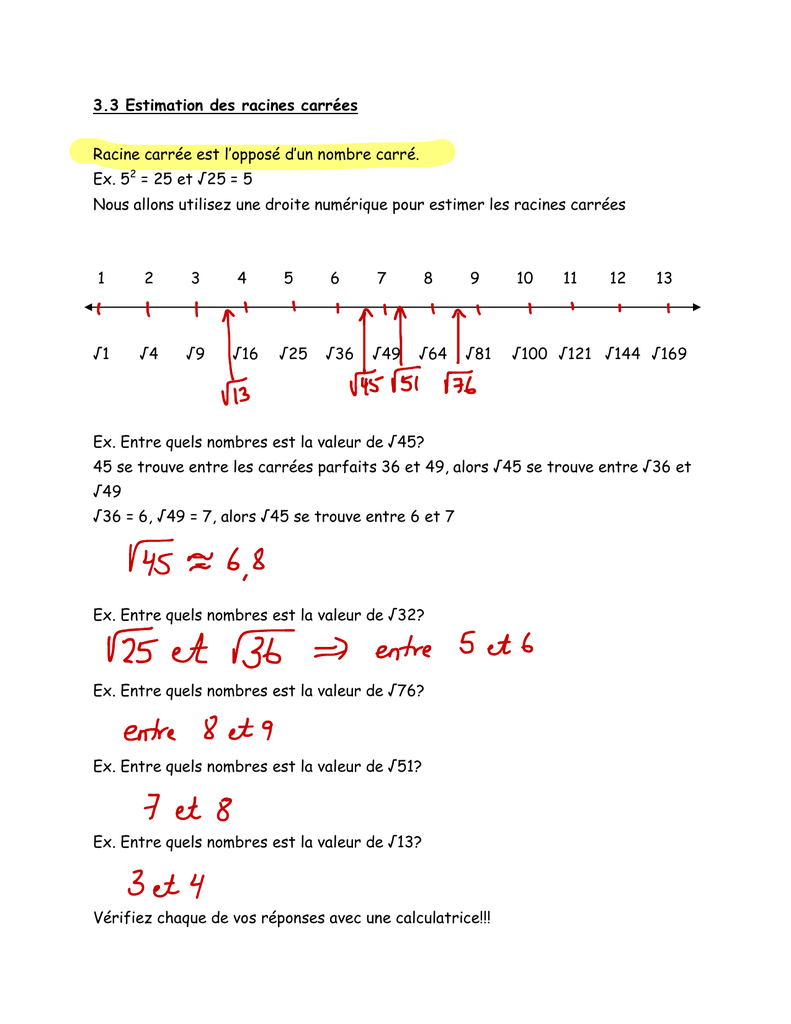 3.3 Estimation des racines carrées
Racine carrée est l'opposé d'un nombre carré.
Ex. 5² = 25 et √25 = 5
Nous allons utilisez une droite numérique pour estimer les racines carrées
1 2 3 4 5 6 7 8 9 10 11 12 13
√1 √4 √9 √16 √25 √36 √49 √64 √81 √100 √121 √144 √169
√13 √45 √51 √76
Ex. Entre quels nombres est la valeur de √45?
45 se trouve entre les carrées parfaits 36 et 49, alors √45 se trouve entre √36 et
√49
√36 = 6, √49 = 7, alors √45 se trouve entre 6 et 7
√45 ≈ 6,8
Ex. Entre quels nombres est la valeur de √32?
√25 et √36 ⇒ entre 5 et 6
Ex. Entre quels nombres est la valeur de √76?
entre 8 et 9
Ex. Entre quels nombres est la valeur de √51?
7 et 8
Ex. Entre quels nombres est la valeur de √13?
3 et 4
Vérifiez chaque de vos réponses avec une calculatrice!!!